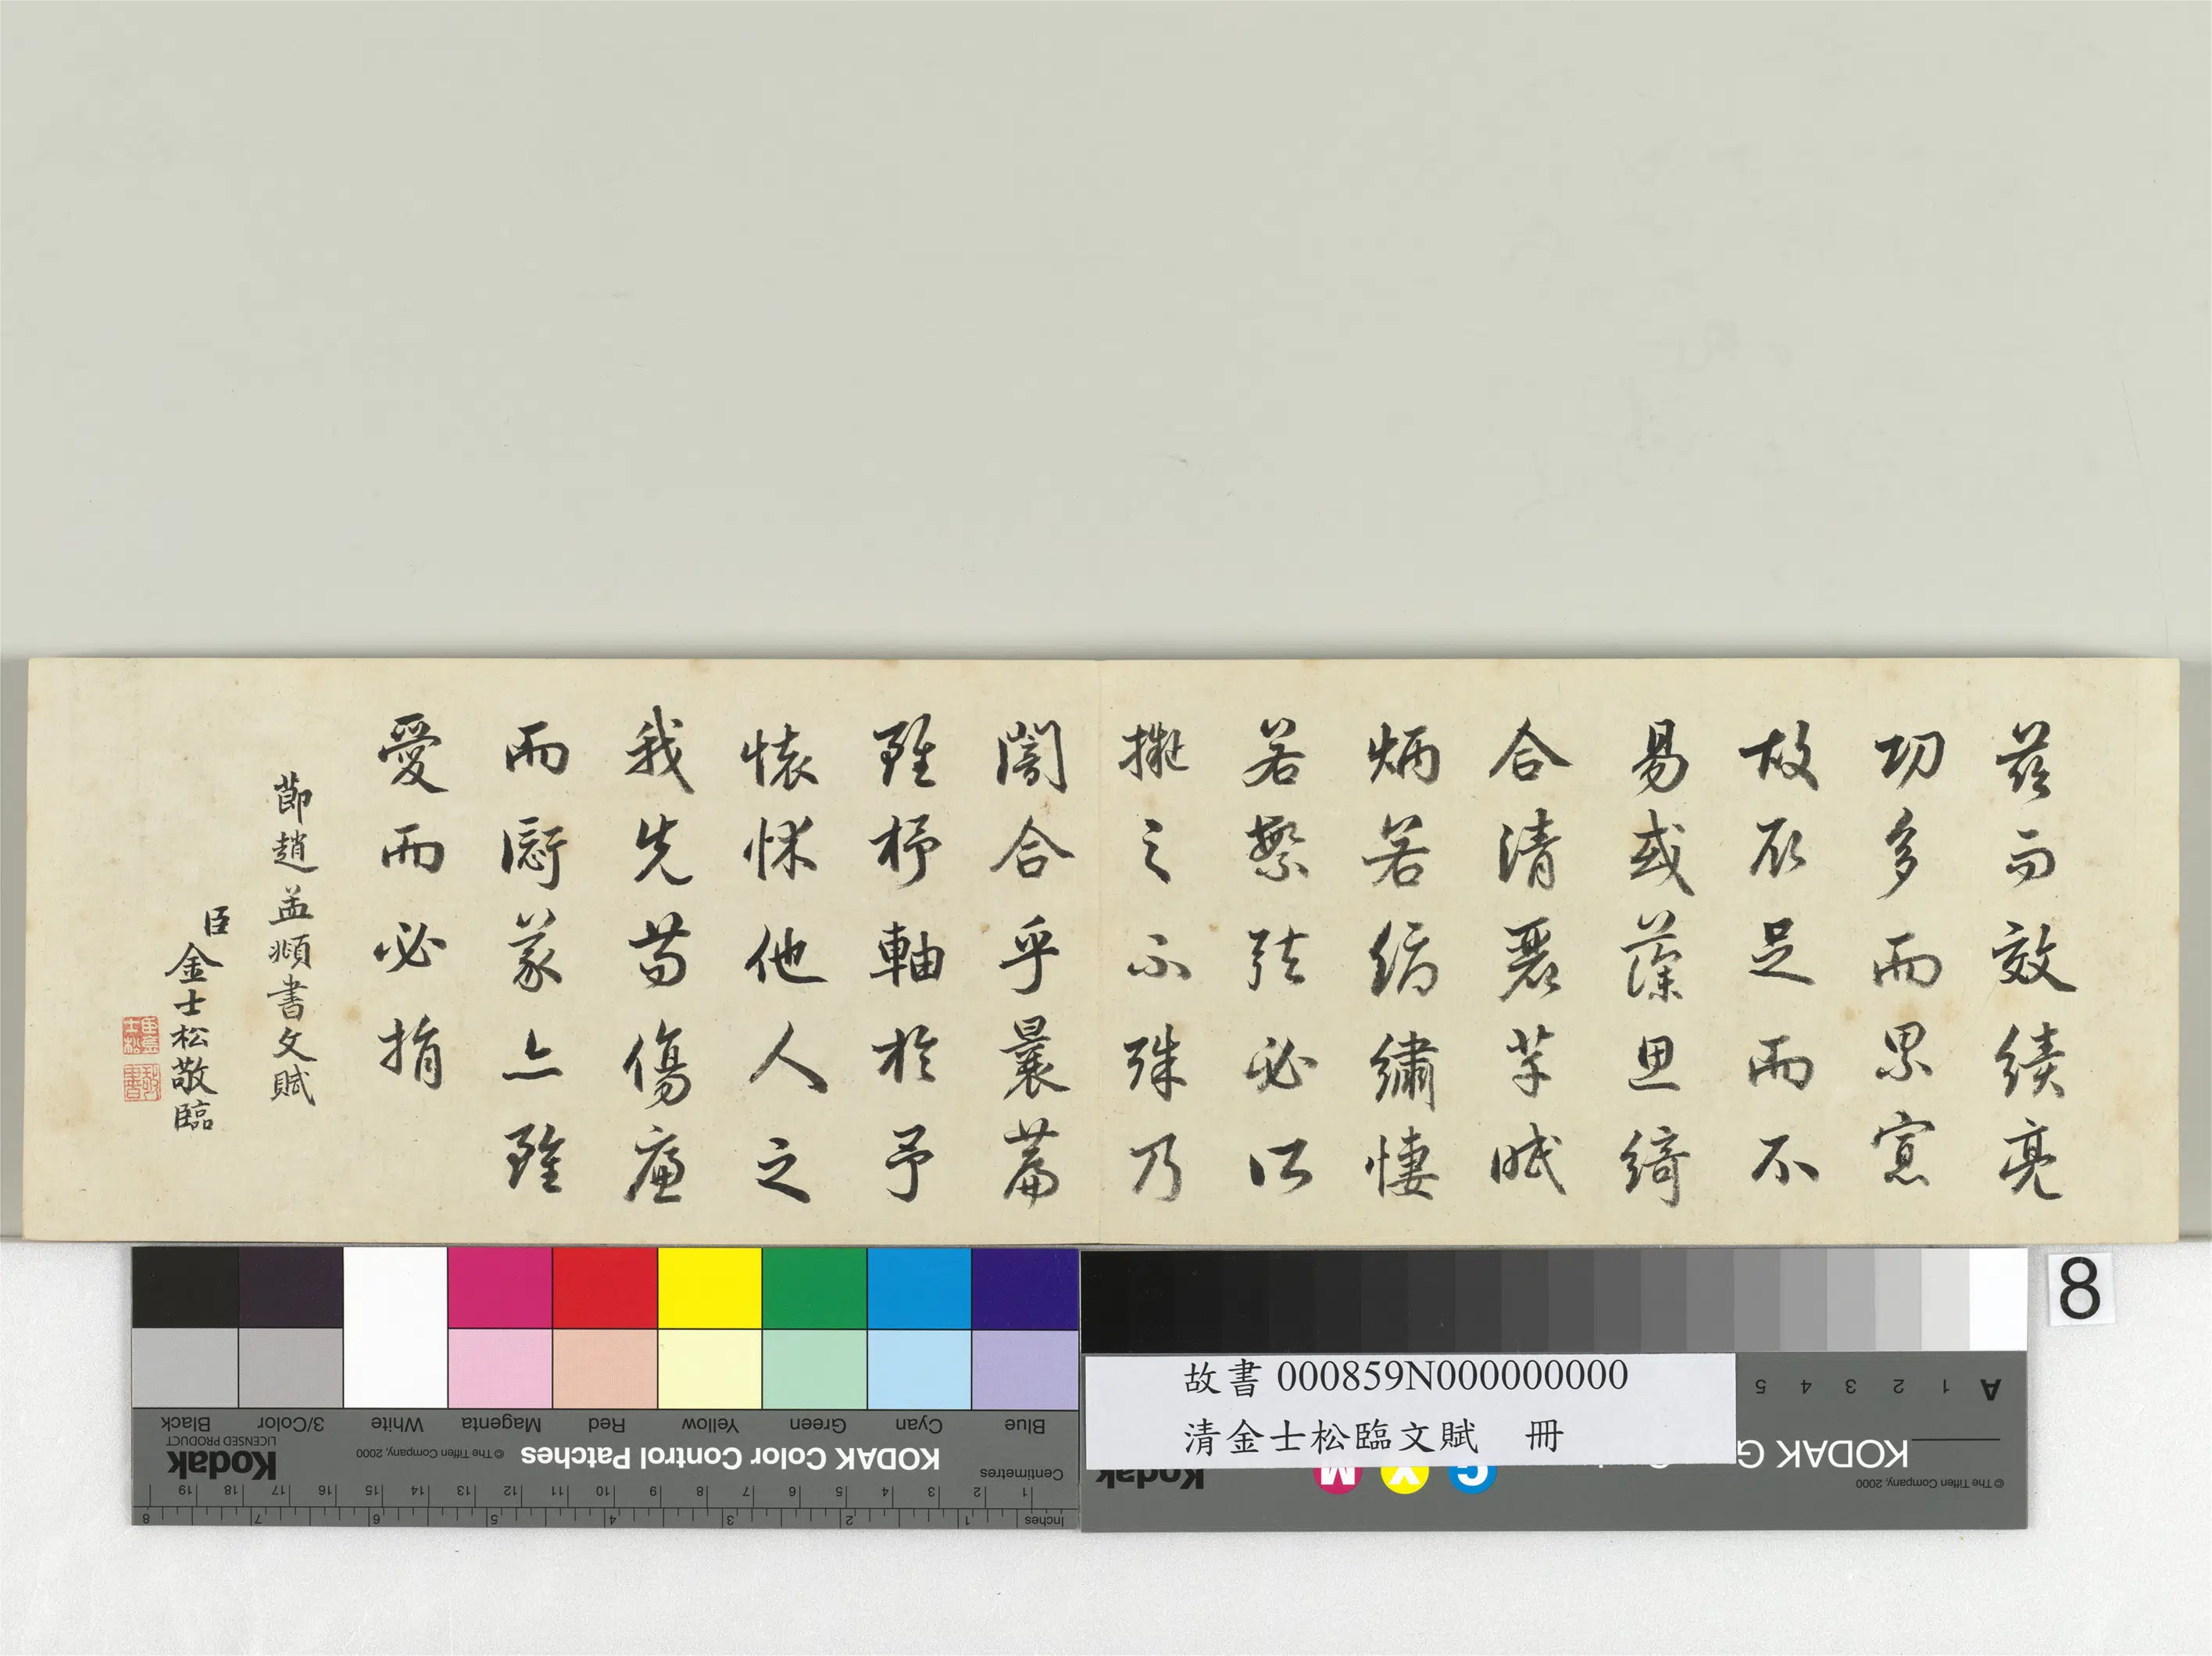 茲而效績亮
功多而累寡
故取足而不
易或藻思綺
合清麗芊眠
炳若縟繡悽
若繁絃必所
擬之不殊乃
闇合乎曩篇
雖杼軸於予
懷怵他人之
我先苟傷廉
而愆義亦雖
愛而必捐
節趙孟頫書文賦
臣金士松敬臨
臣金士松
敬書
8
故書 000859N000000000
清金士松臨文賦 冊
Blue Cyan Green Yellow Red Magenta White 3/Color Black
KODAK Color Control Patches
© The Tiffen Company, 2000
Kodak
LICENSED PRODUCT
Centimetres 1 2 3 4 5 6 7 8 9 10 11 12 13 14 15 16 17 18 19
Inches 1 2 3 4 5 6 7 8
A 1 2 3 4 5
KODAK G
© The Tiffen Company, 2000
C Y M
Kodak